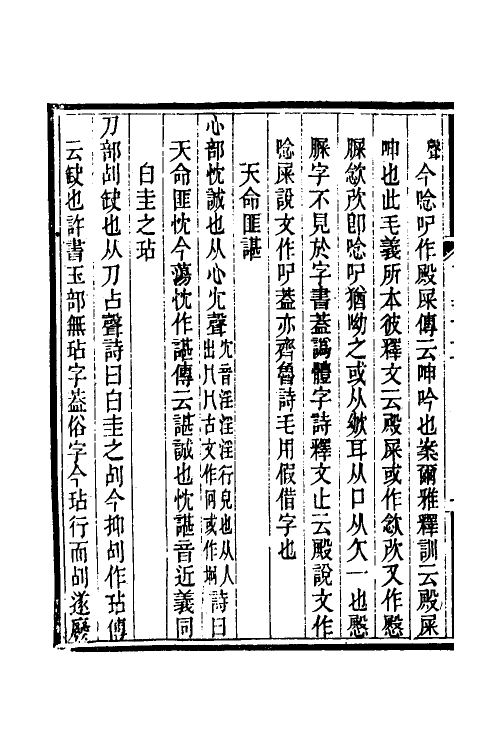 聲今唸㕧作殿屎傳云呻吟也案爾雅釋訓云殿屎
呻也此毛義所本彼釋文云殿屎或作欨又作慇
𡱁欨攺卽唸㕧猶呦之或从欬耳从口从欠一也慇
𡱁字不見於字書蓋譌體字詩釋文止云殿說文作
唸屎說文作㕧蓋亦齊魯詩毛用假借字也
天命匪諶
心部忱誠也从心冘聲冘音淫淫淫行皃也从人出冂冂古文作冋或作坰詩曰
天命匪忱今蕩忱作諶傳云諶誠也忱諶音近義同
白圭之玷
刀部㓠缺也从刀占聲詩曰白圭之㓠今抑㓠作玷傳
云缺也許書玉部無玷字葢俗字今玷行而㓠遂廢